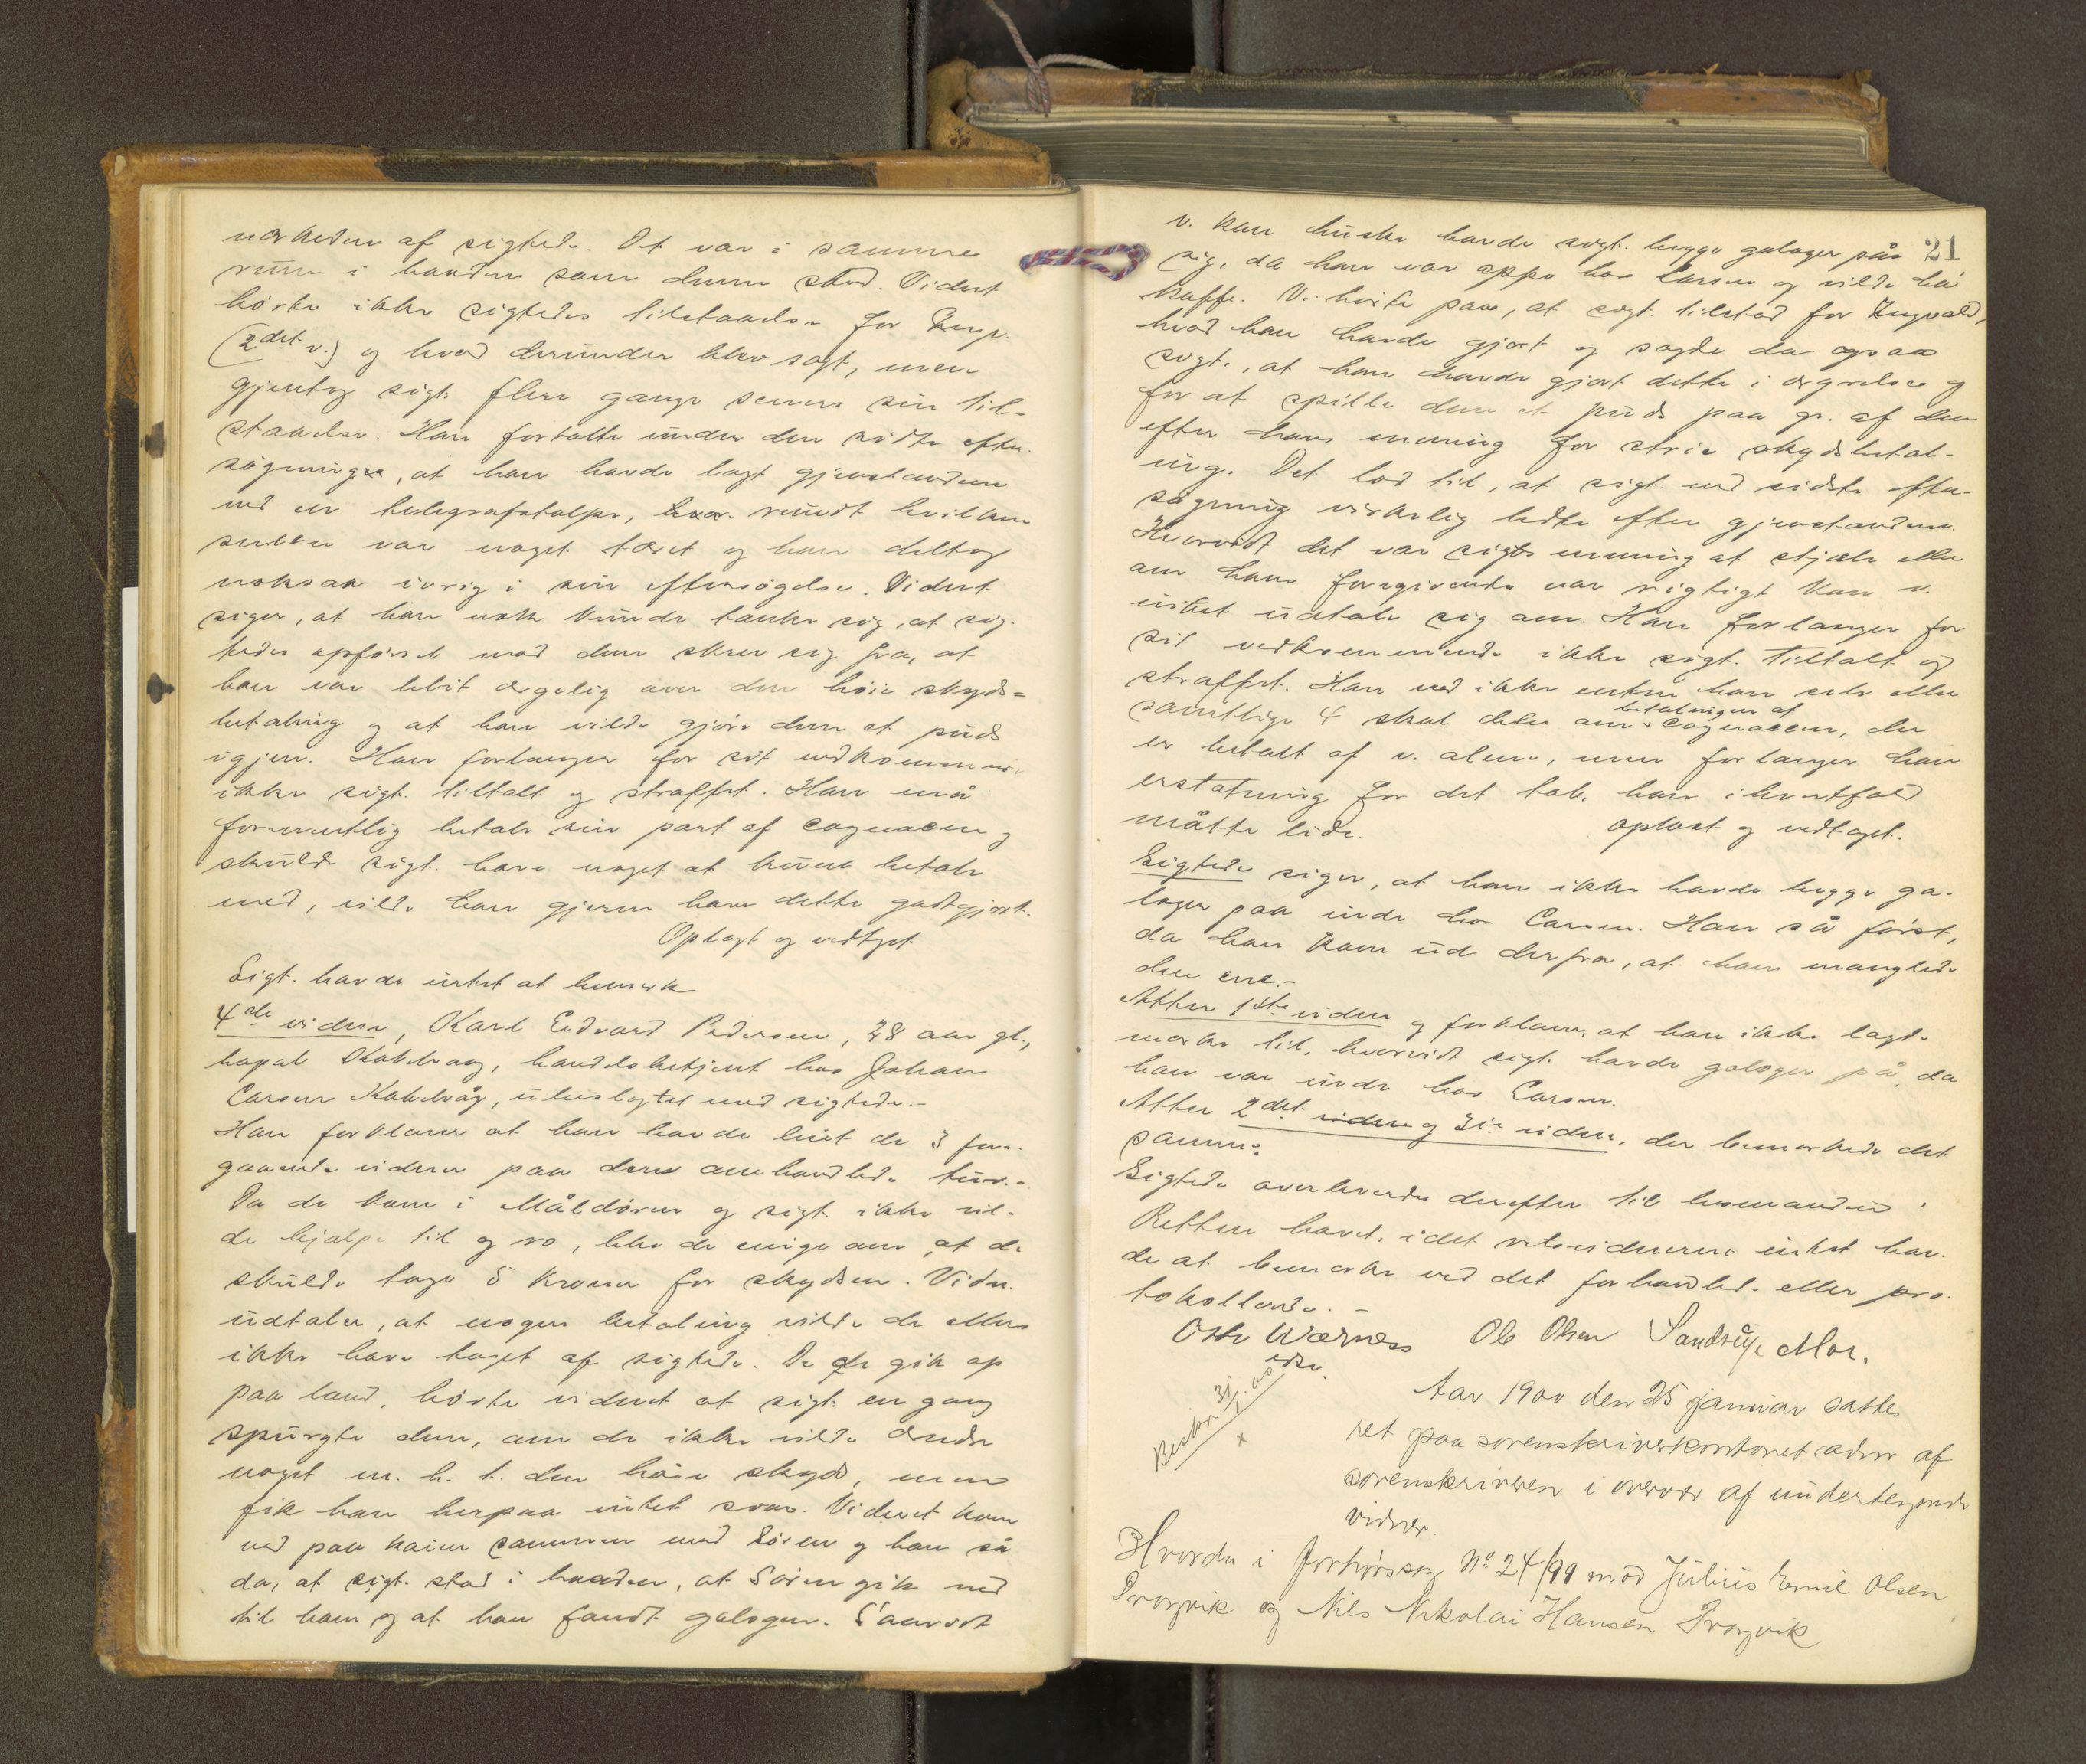 nærheden af sigtede. Det var i samme
rum i baaden som denne stod. Vidnet
hørte ikke sigtedes tilstaaelse for Ingv.
(2det v.) og hvad derunder blev sagt, men
gjentog sigt. flere gange senere sin til-
staaelse. Han fortalte under den sidste efter-
søgning, at han havde lagt gjenstandene
ved en telegrafstolpe, rundt hvilken
sneen var noget tæret og han deltog
noksaa ivrig i sin eftersøgelse. Vidnet
siger, at han nok kunde tænke sig, at sig-
tedes opførsel mod dem skrev sig fra, at
han var blit ærgelig over den høie skyds-
betaling og at han vilde gjøre dem et puds
igjen. Han forlanger for sit vedkommende
ikke sigt. tiltalt og straffet. Han må
formentlig betale sin part af cognacen og
skulde sigt. have noget at kunne betale
med, vilde han gjerne have dette godtgjort.
Oplæst og vedtaget.
Sigt. havde intet at bemærke
4de vidne, Karl Edvard Pedersen, 28 aar gl.,
bopæl Kabelvaag, handelsbetjent hos Johan
Larsen Kabelvåg, ubeslægtet med sigtede.-
Han forklarer at han havde leiet de 3 fore-
gaaende vidner paa deres omhandlede tur.-
Da de kom i Måldøren og sigt. ikke vil-
de hjælpe til og ro, blev de enige om, at de
skulde tage 5 kroner for skydsen. Vidn.
udtaler, at nogen betaling vilde de ellers
ikke have taget af sigtede. Da de gik op
paa land, hørte vidnet at sigt. en gang
spurgte dem, om de ikke vilde ændre
noget m. h. t. den høie skyds, men
fik han herpaa intet svar. Vidnet kom
ned paa kaien sammen med Søren og han så
da, at sigt. stod i baaden, at Søren gik ned
til ham og at han fandt galogen. Saavidt
21
v. kan huske havde sigt. begge galoger på
sig, da han var oppe hos Larsen og vilde ha
kaffe. V. hørte paa, at sigt. tilstod for Ingvald,
hvad han havde gjort og sagde da ogsaa
sigt., at han havde gjort dette i ærgrelse og
for at spille dem et puds paa gr. af den
efter hans mening for strie skydsbetal-
ing. Det lod til, at sigt. ved sidste efter-
søgning virkelig ledte efter gjenstandene.
Hvorvidt det var sigts mening at stjæle eller
om hans foregivende var rigtigt kan v.
intet udtale sig om. Han forlanger for
sit vedkommende ikke sigt. tiltalt og
straffet. Han ved ikke enten han selv eller
samtlige 4 skal deles om betalingen af cognacen, der
er betalt af v. alene, men forlanger han
erstatning for det tab, han ihvertfald
måtte lide. oplæst og vedtaget.
Sigtede siger, at han ikke havde begge ga-
loger paa inde hos Larsen. Han så først,
da han kom ud derfra, at han manglede
den ene.-
Atter 1ste vidne og forklarer, at han ikke lagde
mærke til, hvorvidt sigt. havde galoger på, da
han var inde hos Larsen.
Atter 2det vidne og 3die vidne, der bemærkede det
samme.
Sigtede overleverdes derefter til lensmanden
Retten hævet, idet retsvidnerne intet hav-
de at bemærke ved det forhandlede eller pro-
tokollerede. -
Otto Wærness Ole Olsen Sandvige Mor.
edsv.
Beskr. 31/1.00
x
Aar 1900 den 25 januar sattes
ret paa sorenskriverkontoret adm. af
sorenskriveren i overvær af undertegnede
vidner.
Hvorda i forhørssag No 24/99 mod Julius Emil Olsen
Provik og Nils Nikolai Hansen